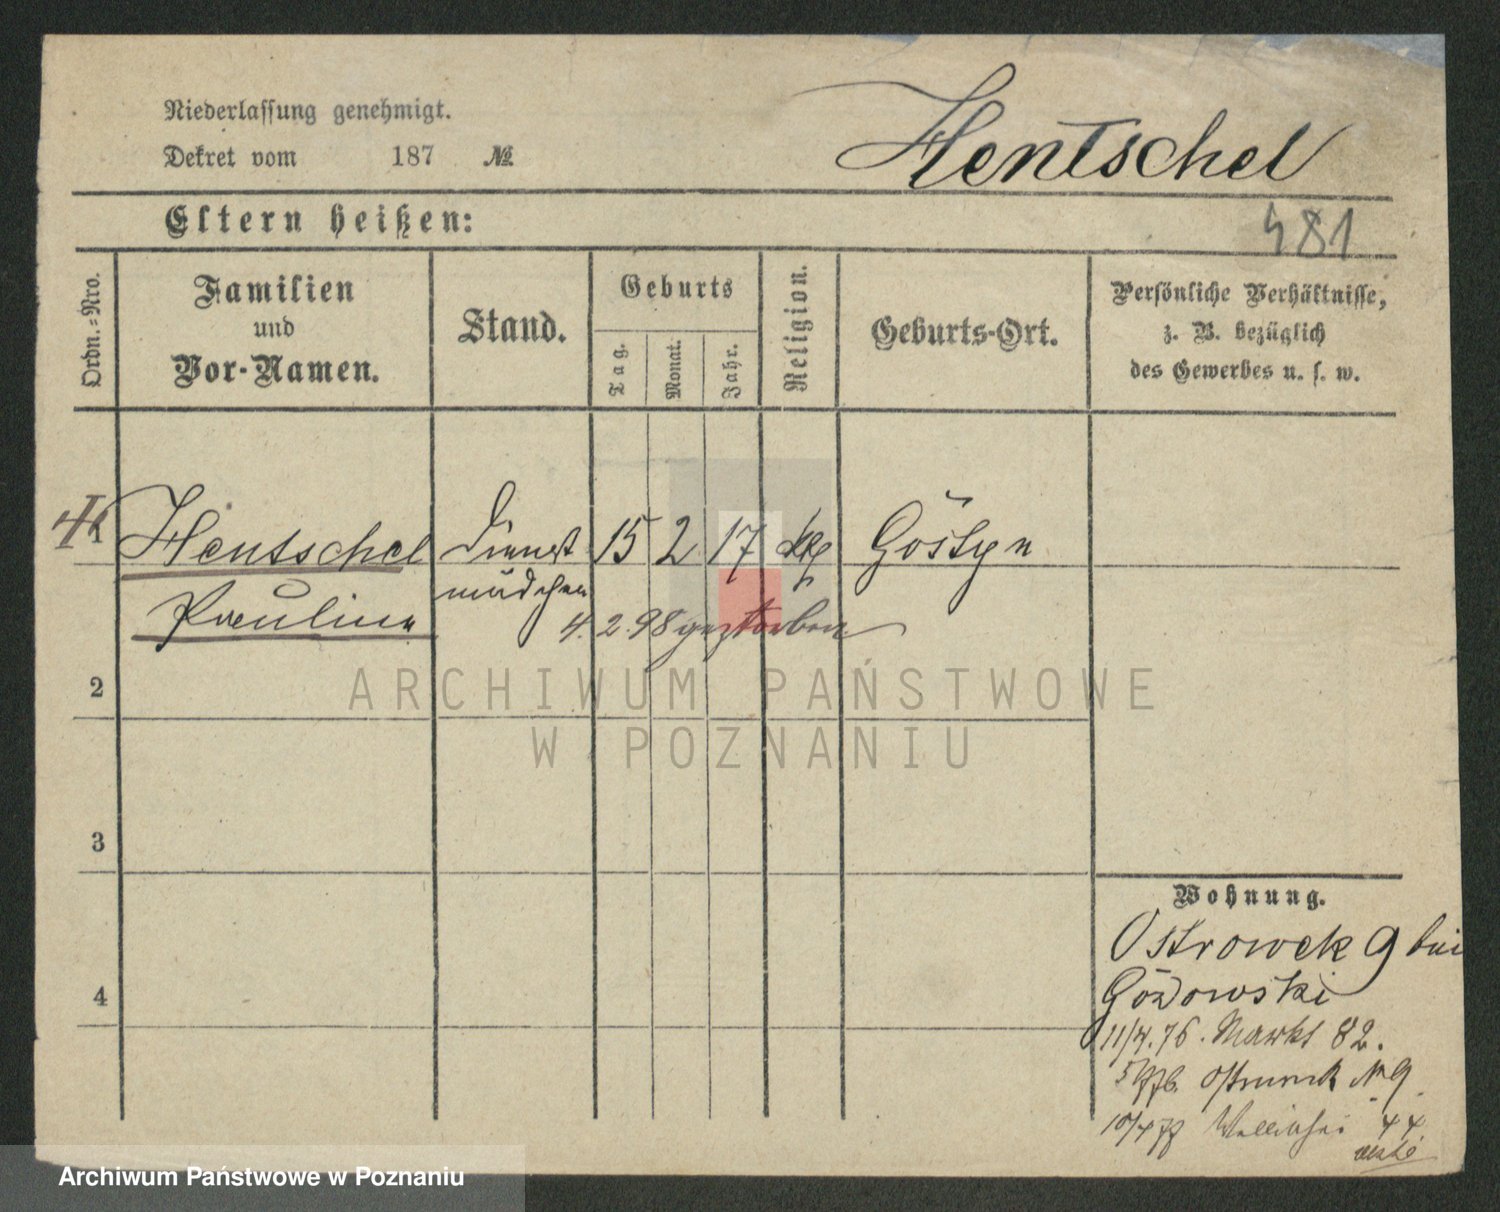 Niederlassung genehmigt.
Dekret vom 187 №
Hentschel
Eltern heißen:
481
Ordn.-Nro.
Familien
und
Vor-Namen.
Stand.
Geburts
Tag.
Monat.
Jahr.
Religion.
Geburts-Ort.
Persönliche Verhältnisse,
z. B. bezüglich
des Gewerbes u. s. w.
1 Hentschel Dienst 15 2 17 Göstyn
Pauline mädchen
4.2.98 gestorben
ARCHIWUM PAŃSTWOWE
W POZNANIU
2
3
4
Wohnung.
Ostrowek 9 bei
Gózowski
11/4.76. Markt 82.
Ostrowek № 9
Wallischei 44
Archiwum Państwowe w Poznaniu